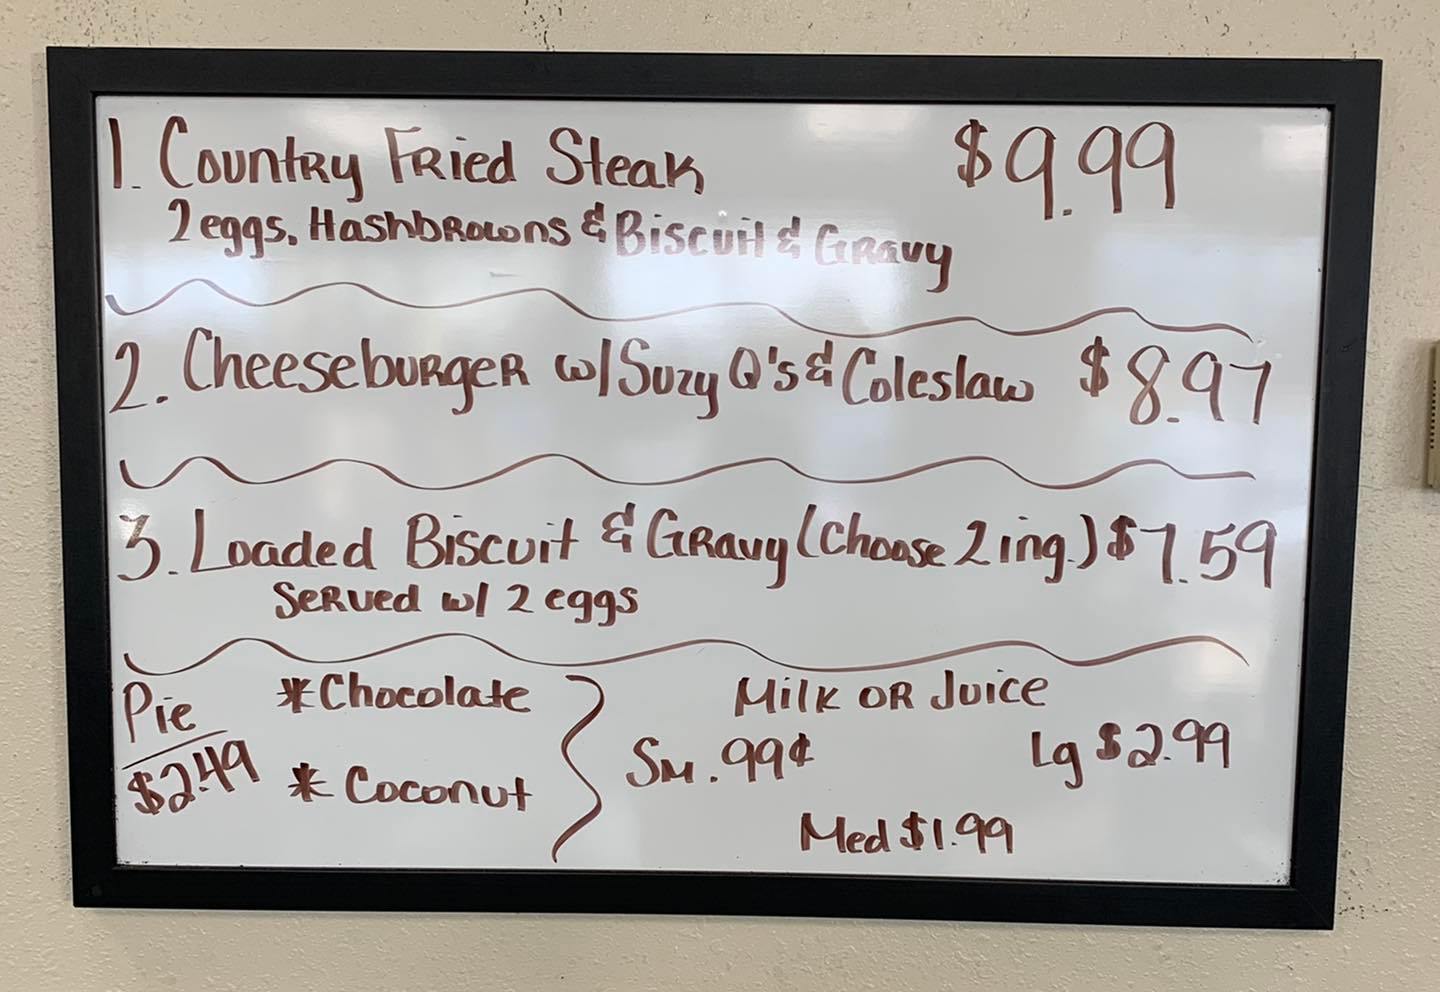 1. Country Fried Steak $9.99
2 eggs, Hashbrowns & Biscuit & Gravy
2. Cheeseburger w/ Suzy Q's & Coleslaw $8.97
3. Loaded Biscuit & Gravy (Choose 2 ing.) $7.59
Served w/ 2 eggs
Pie
$2.49
* Chocolate
* Coconut
Milk OR Juice
Sm .99¢
Lg $2.99
Med $1.99